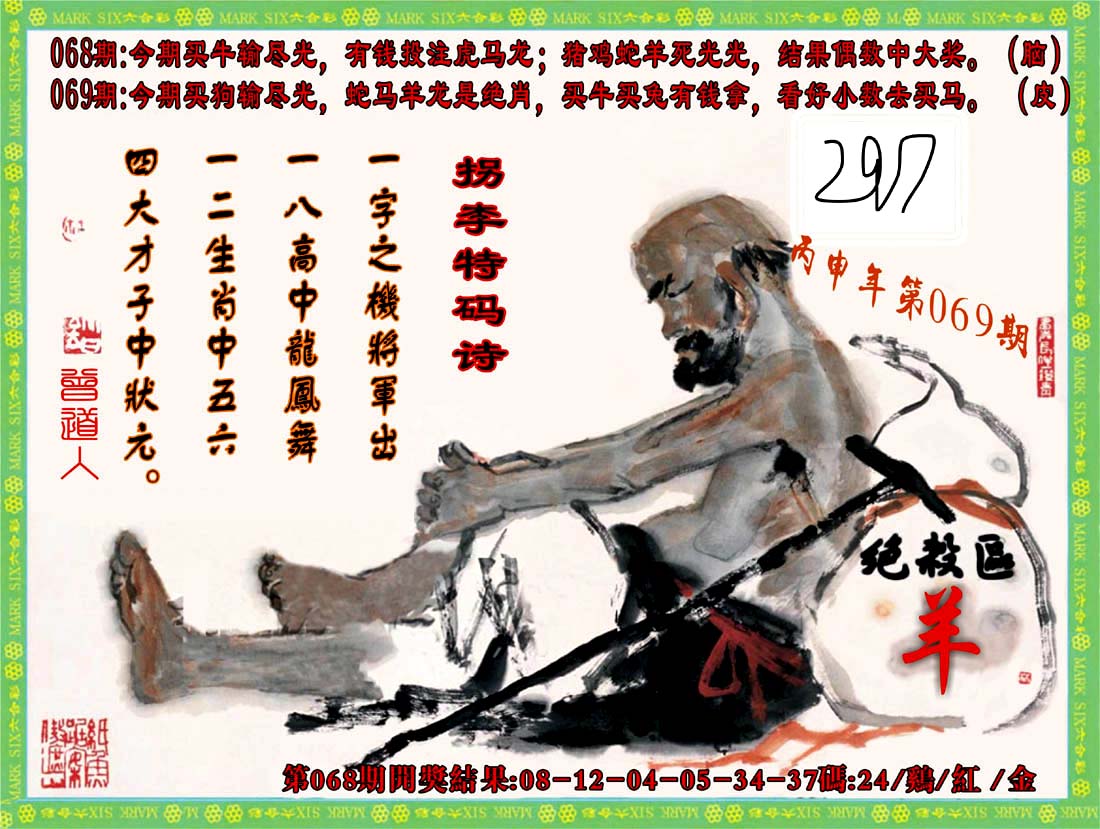 068期:今期买牛输尽光，有钱投注虎马龙；猪鸡蛇羊死光光，结果偶数中大奖。（脑）
069期:今期买狗输尽光，蛇马羊龙是绝肖，买牛买兔有钱拿，看好小数去买马。（皮）
297
丙申年第069期
拐李特码诗
一字之機將軍出
一八高中龍鳳舞
一二生肖中五六
四大才子中狀元。
曾道人
绝殺區
羊
第068期開獎結果:08-12-04-05-34-37碼:24/鷄/紅/金
MARK SIX六合彩